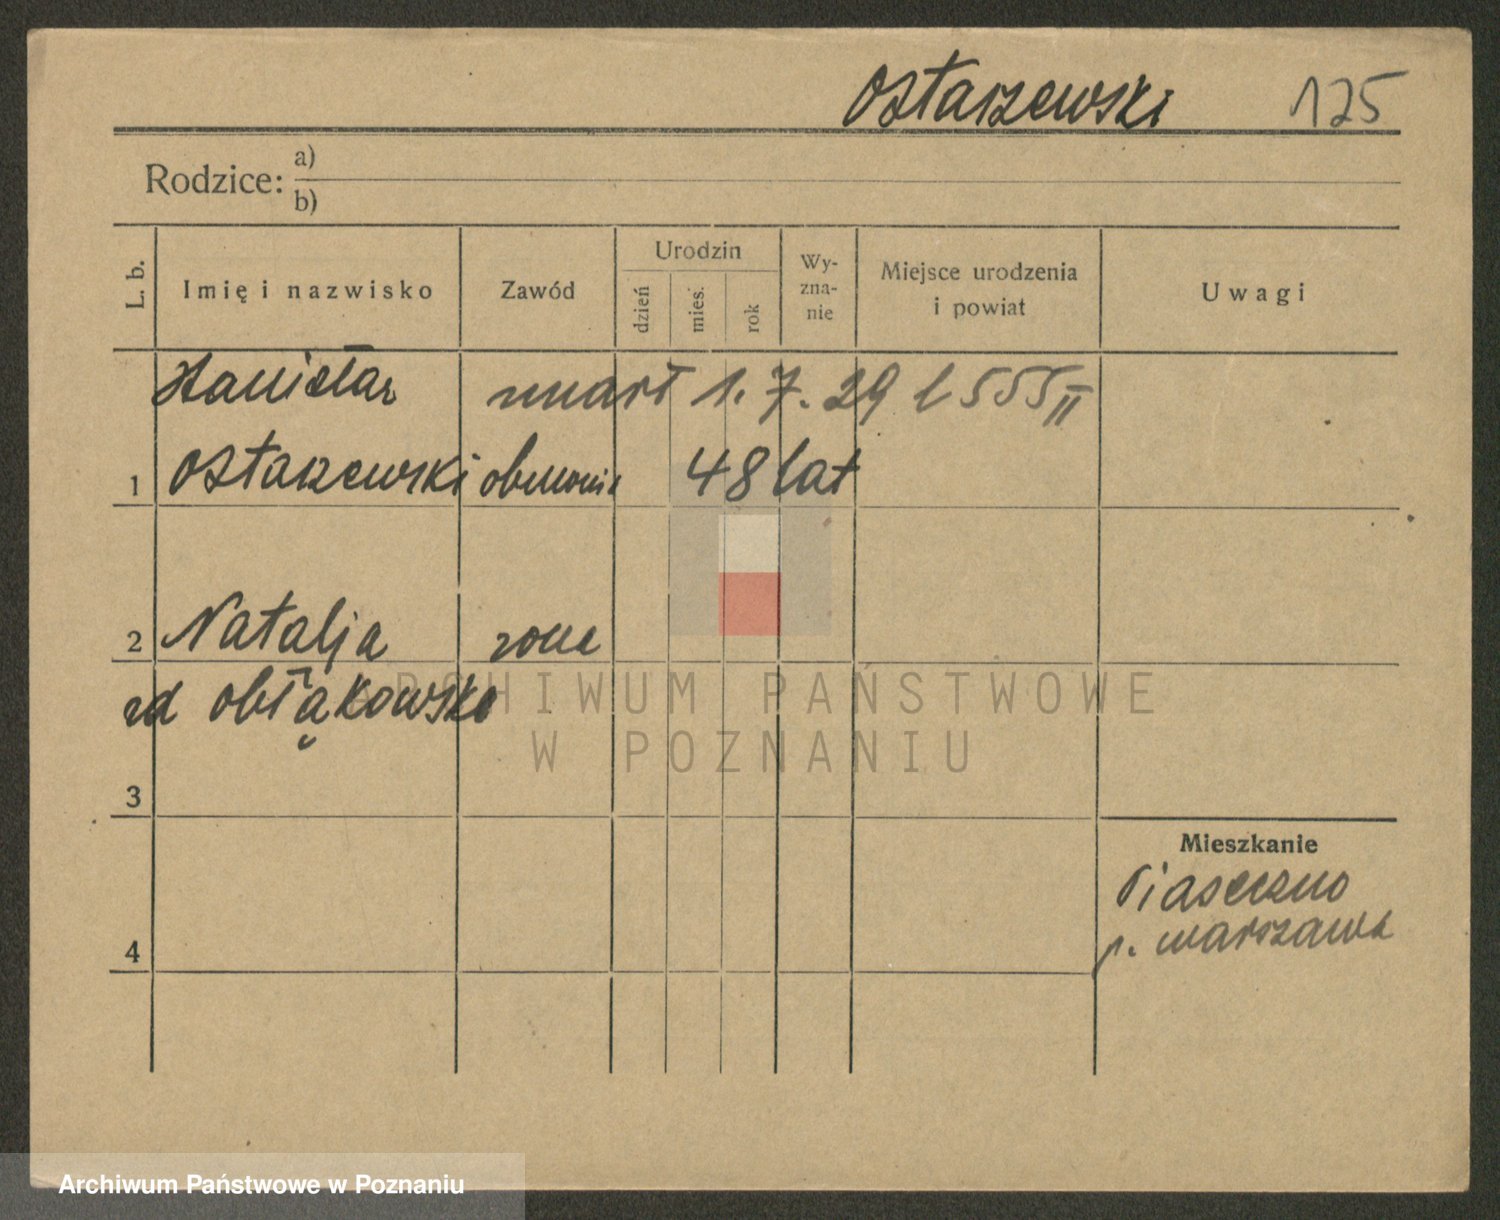 Ostaszewski 125
Rodzice: a)
b)
L. b.
Imię i nazwisko
Zawód
Urodzin
dzień
mies.
rok
Wy-
zna-
nie
Miejsce urodzenia
i powiat
Uwagi
Stanisław
zmarł 1. 7. 29 l 555 II
1 Ostaszewski
48 lat
2 Natalja żona
zd obłąkowska
3
4
Mieszkanie
Piaseczno
p. warszawa
ARCHIWUM PAŃSTWOWE
W POZNANIU
Archiwum Państwowe w Poznaniu